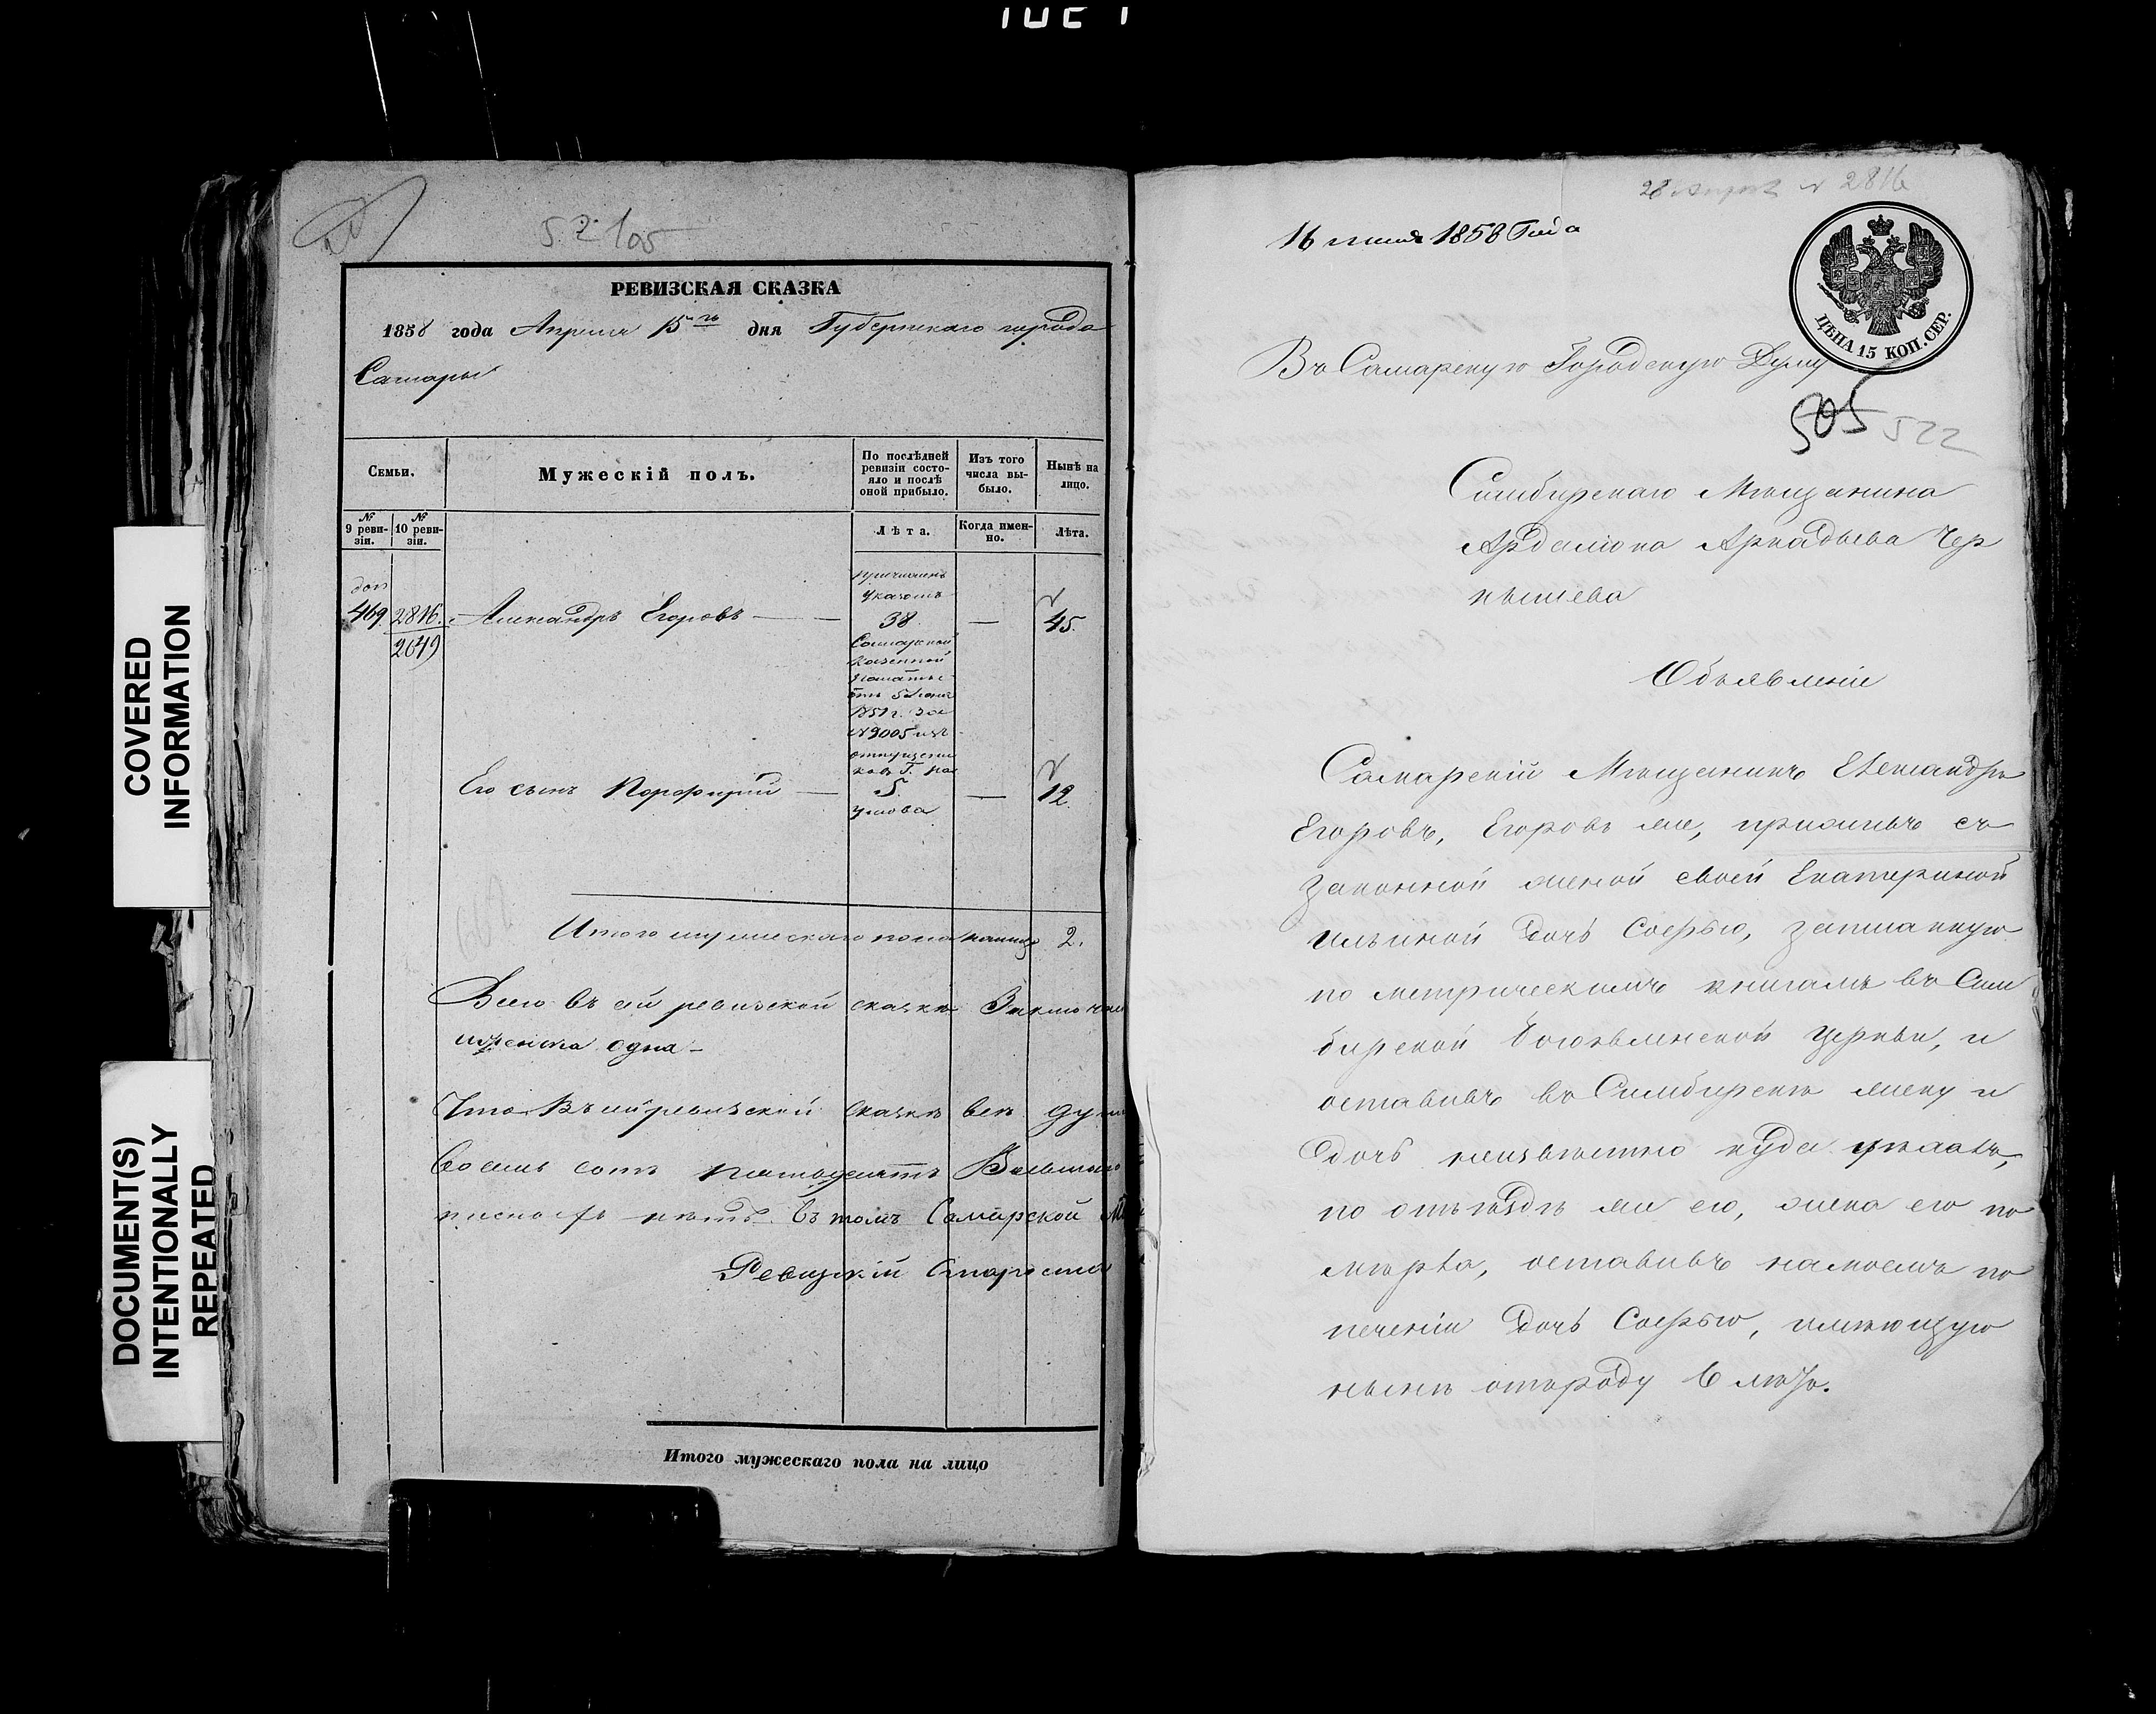 COVERED
INFORMATION
DOCUMENT(S)
INTENTIONALLY
REPEATED
РЕВИЗСКАЯ СКАЗКА
1858 года Апреля 15 дня Губернскаго города
Самары
Семьи.
Мужескій полъ.
По послѣдней ревизіи состояло и послѣ оной прибыло.
Изъ того числа выбыло.
Нынѣ на лицо.
№ 9 ревизіи.
№ 10 ревизіи.
Лѣта.
Когда именно.
Лѣта.
доп
469 2816 Александръ Егоровъ — 38 — 45.
2049
причисленъ
указомъ
Самарской
Казенной
Палаты
отъ 5 Июня
1851 г. за
№ 9005 изъ
отпущенни
ковъ Г. На
умова
Его сынъ Порфирий — 5. — 12.
Итого мужескаго пола налицо 2.
Всего въ сей ревизской сказке Заключ
одна
Что Въ сей ревизской сказке всѣ душ
Восемь сотъ пятьдесятъ
нѣтъ. Въ томъ Самарской
Ревизскій Старо
Итого мужескаго пола на лицо
2816
16 1858 Года
ЦѢНА 15 КОП. СЕР.
Въ Самарскую Городскую Думу
505 522
Симбирскаго Мѣщанина
Ардалiона Аркадьева Чер
нышева
Объявленіе
Самарскій Мѣщанинъ Александръ
Егоровъ, Егоровъ же, приживъ съ
законной женой своей Екатериной
Ильиной дочь Софью, записанную
по метрическимъ книгамъ въ Сим
бирской Богоявленской церкви, и
оставивъ въ Симбирскѣ жену и
дочь неизвѣстно куда уѣхалъ,
по отъѣздѣ же его, жена его по
мѣрла, оставивъ на моемъ по
печеніи дочь Софью, имѣющую
нынѣ отъроду 6 лѣтъ.